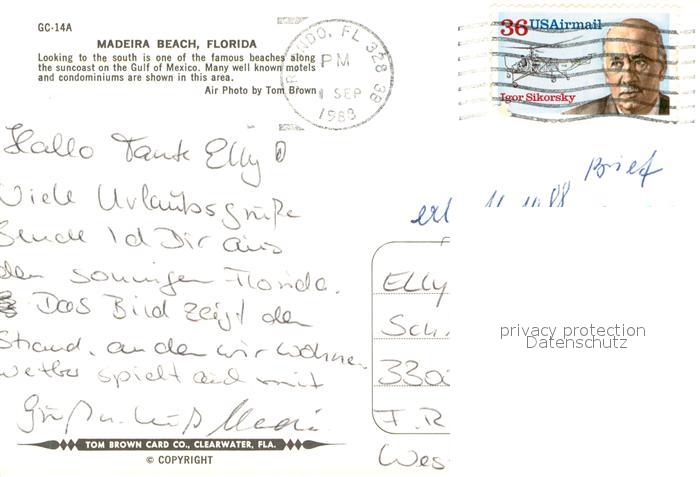 GC-14A
MADEIRA BEACH, FLORIDA
Looking to the south is one of the famous beaches along
the suncoast on the Gulf of Mexico. Many well known motels
and condominiums are shown in this area.
Air Photo by Tom Brown
ORLANDO, FL 328
PM
1 SEP
1988
36 USAirmail
Igor Sikorsky
Hallo Tante Elly
Viele Urlaubsgrüße
sende ich Dir aus
dem sonnigen Florida.
Das Bild zeigt den
Strand, an dem wir wohnen
Wetter spielt auch mit
Gruß u. Kuß
Brief
Elly
Sch.
330
F.R
Wes
privacy protection
Datenschutz
TOM BROWN CARD CO., CLEARWATER, FLA.
© COPYRIGHT